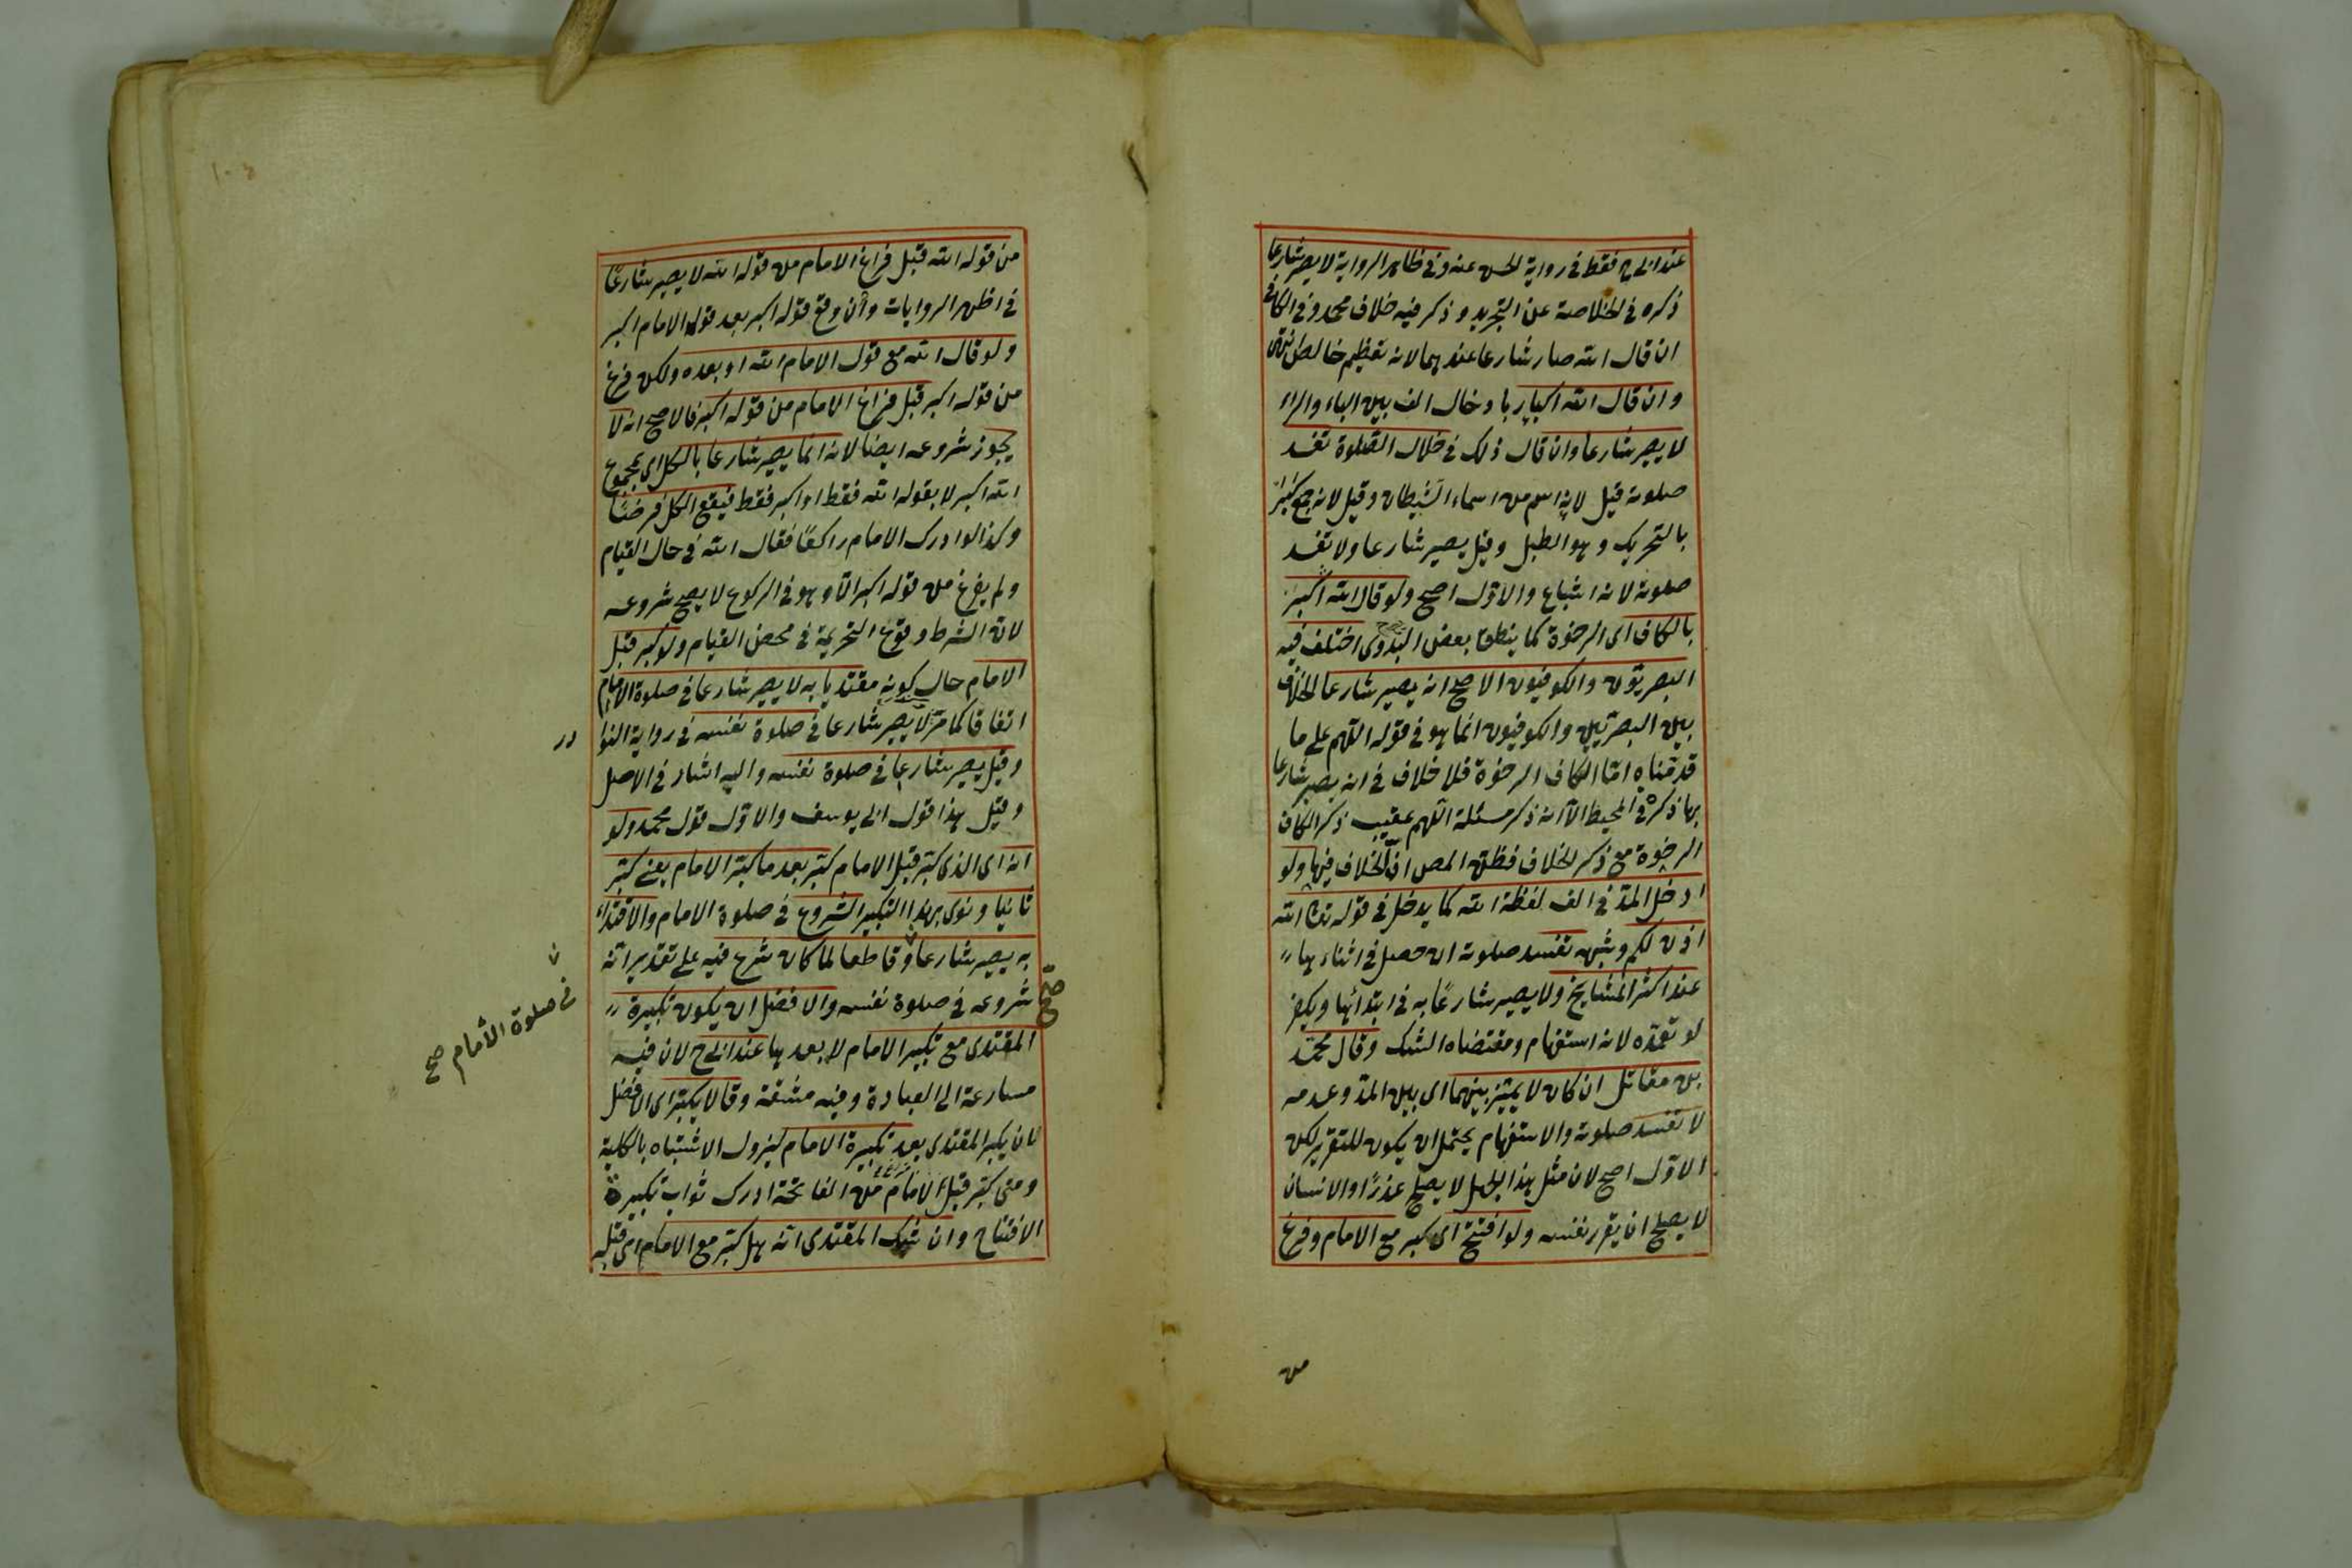 عند ابى ح فقط فى رواية الحسن عنه وفى ظاهر الرواية لا يصير شارعا
ذكره فى الخلاصة عن التجريد وذكر فيه خلاف محمد وفى الكافى
ان قال الله صار شارعا عندهما لانه تعظيم خالص انتهى
وان قال الله اكبار بادخال الف بين الباء والراء
لا يصير شارعا وان قال ذلك فى خلال الصلوة تفسد
صلوته قيل لانه اسم من اسماء الشيطان وقيل لانه جمع كبر
بالتحريك وهو الطبل وقيل يصير شارعا ولا تفسد
صلوته لانه اشباع والاول اصح ولو قال الله اكبر
بالكاف اى الرخوة كما ينطق بعض البدوى اختلف فيه
البصريون والكوفيون الاصح انه يصير شارعا الخلاف
بين البصريين والكوفيون انما هو فى قوله اللهم على ما
قدمناه امّا الكاف الرخوة فلا خلاف فى انه يصير شارعا
بها ذكره فى المحيط الا انه ذكر مسئلة اللهم عقيب ذكر الكاف
الرخوة مع ذكر الخلاف فظن المص انّ الخلاف فيها ولو
ادخل المدّ فى الف لفظة الله كما يدخل فى قوله تعالى الله
اذن لكم وشبهه تفسد صلوته ان حصل فى اثنائها
عند اكثر المشايخ ولا يصير شارعًا به فى ابتدائها ويكفر
لو تعمّده لانه استفهام ومقتضاه الشك وقال محمّد
بن مقاتل ان كان لا يميّز بينهما اى بين المدّ وعدمه
لا تفسد صلوته والاستفهام يحتمل ان يكون للتقرير لكن
الاوّل اصح لان مثل هذا الجهل لا يصلح عذرًا والانسان
لا يصلح ان يقرر نفسه ولو افتتح اى كبر مع الامام وفرغ
من
من قوله الله قبل فراغ الامام من قوله الله لا يصير شارعًا
فى اظهر الروايات وان وقع قوله اكبر بعد قوله الامام اكبر
ولو قال الله مع قول الامام الله او بعده ولكن فرغ
من قوله اكبر قبل فراغ الامام من قوله اكبر فالاصح انه لا
يجوز شروعه ايضا لانه انما يصير شارعا بالكل اى بمجموع
الله اكبر لا بقوله الله فقط او اكبر فقط فيقع الكل فرضًا
وكذا لو ادرك الامام راكعًا فقال الله فى حال القيام
ولم يفرغ من قوله اكبر الّا وهو فى الركوع لا يصح شروعه
لانّ الشرط وقوع التحريمة فى محض القيام ولو كبر قبل
الامام حال كونه مقتديا به لا يصير شارعا فى صلوة الامام
اتفاقا كما مرّ لا يصير شارعا فى صلوة نفسه فى رواية النوا
در
وقيل يصير شارعا فى صلوة نفسه واليه اشار فى الاصل
وقيل هذا قول ابى يوسف والاوّل قول محمد ولو
انه اى الذى كبّر قبل الامام كبّر بعد ما كبّر الامام يعنى كبّر
ثانيا ونوى بهذا التكبير الشروع فى صلوة الامام والاقتداء
به يصير شارعا وقاطعا لما كان شرع فيه على تقدير انّه
فى صلوة الامام صح
صح
شروعه فى صلوة نفسه والافضل ان يكون تكبيرة
المقتدى مع تكبير الامام لا بعدها عند ابى ح لان فيه
مسارعة الى العبادة وفيه مشقة وقالا يكبّر اى الافضل
لان يكبر المقتدى بعد تكبيرة الامام ليزول الاشتباه بالكلية
ومتى كبّر قبل الامام من الفاتحة ادرك ثواب تكبيرة
الافتتاح وان شك المقتدى انه هل كبّر مع الامام ام قبله